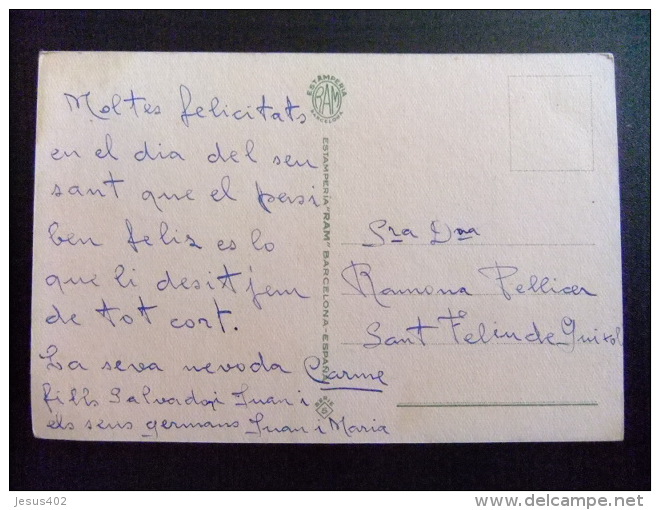 Moltes felicitats
en el dia del seu
sant que el passi
ben felis es lo
que li desitjem
de tot cort.
La seva nevoda Carme
fills Salvador i Juan i
els seus germans Juan i Maria
ESTAMPERIA
RAM
BARCELONA
ESTAMPERIA "RAM" BARCELONA-ESPAÑA
SERIE
Sra Dna
Ramona Pellicer
Sant Feliu de Guixols
Jesus402
delcampe.net